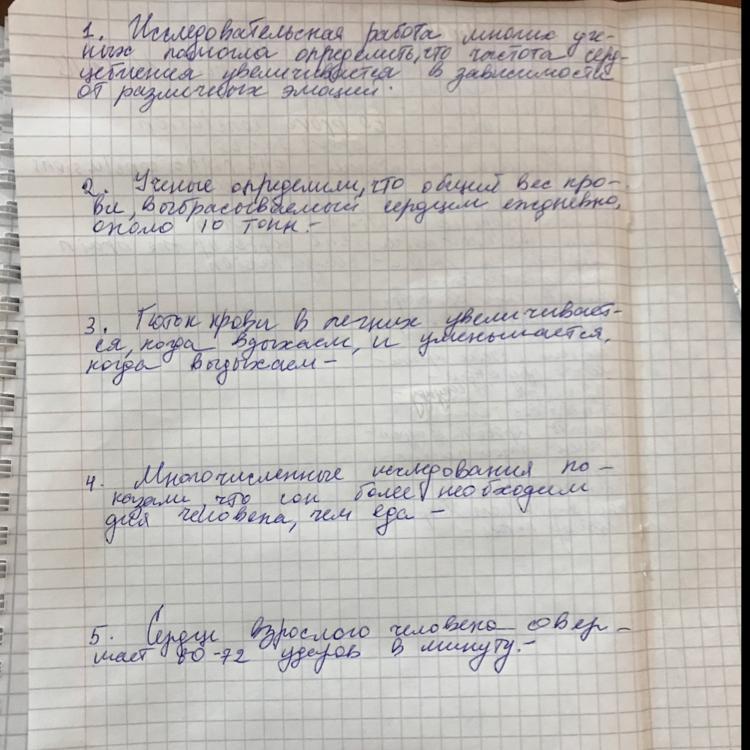 1. Исследовательская работа многих уче-
ных помогла определить, что частота серд-
цебиения увеличивается в зависимости
от различных эмоций.
2. Ученые определили, что общий вес кро-
ви, выбрасываемый сердцем ежедневно,
около 10 тонн.-
3. Поток крови в легких увеличивает-
ся, когда вдыхаем, и уменьшается,
когда выдыхаем-
4. Многочисленные исследования по-
казали что сон более необходим
для человека, чем еда -
5. Сердце взрослого человека совер-
шает 60-72 ударов в минуту.-